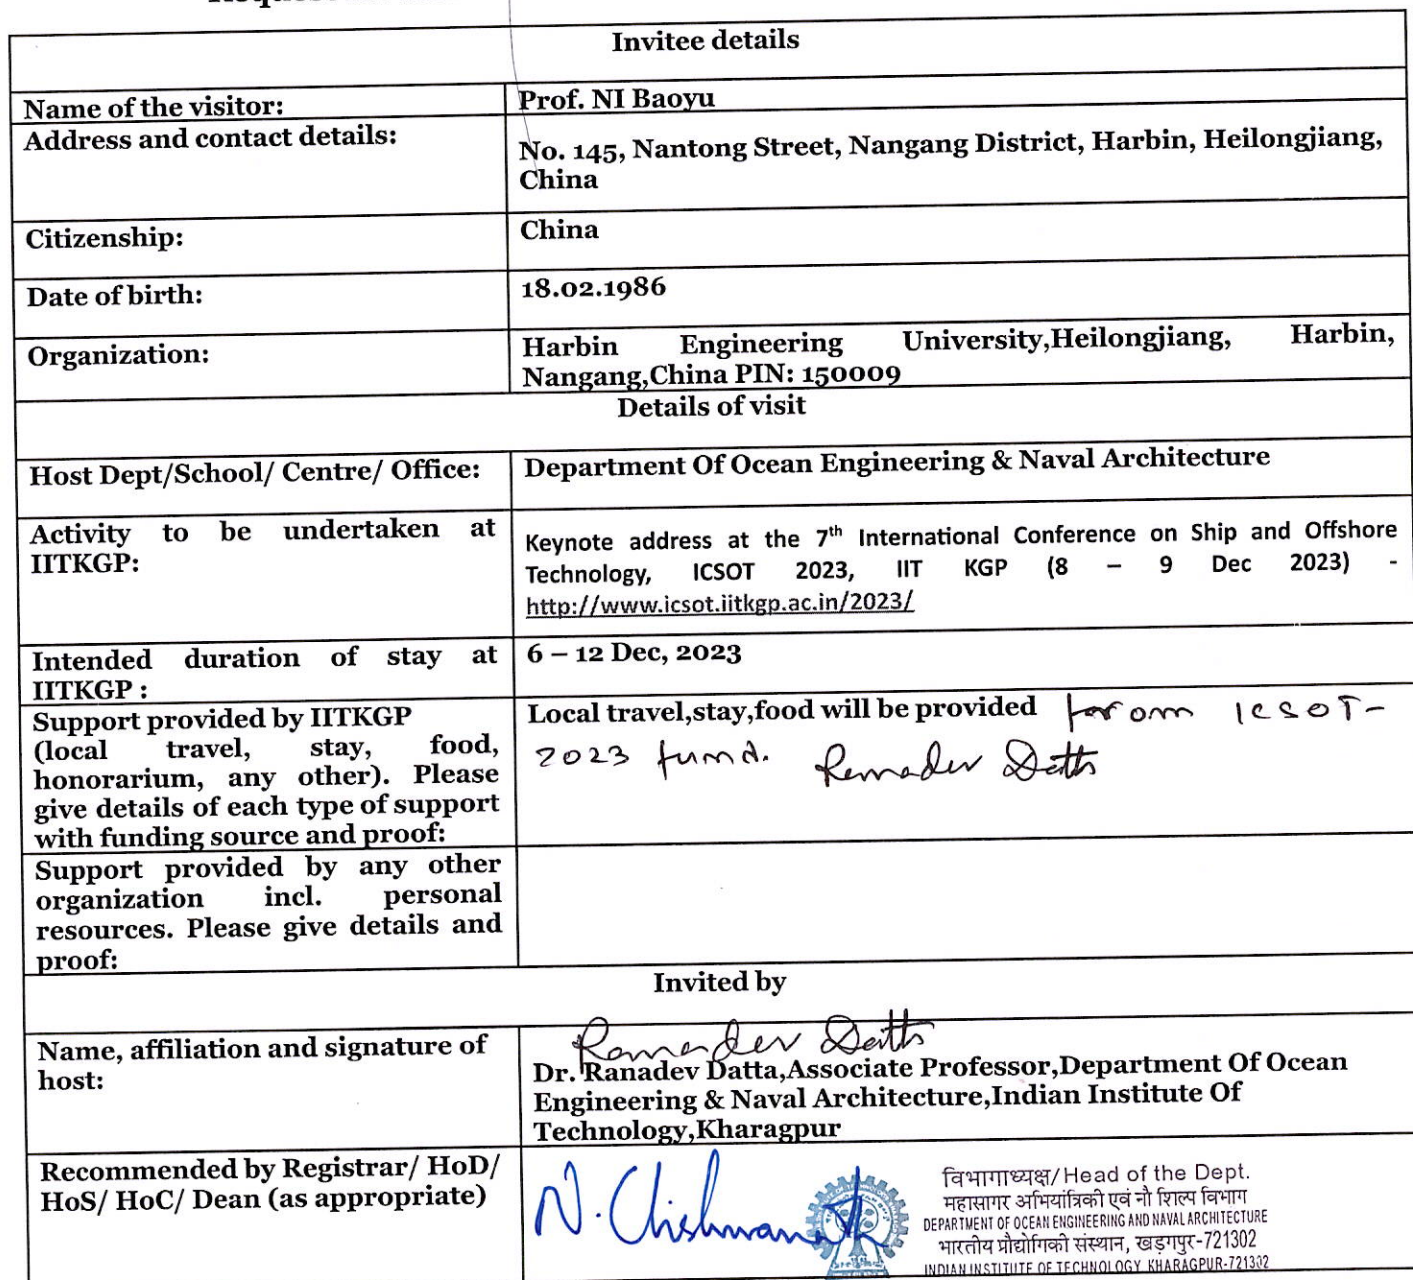 Invitee details
Name of the visitor: Prof. NI Baoyu
Address and contact details: No. 145, Nantong Street, Nangang District, Harbin, Heilongjiang,
China
Citizenship: China
Date of birth: 18.02.1986
Organization: Harbin Engineering University,Heilongjiang, Harbin,
Nangang,China PIN: 150009
Details of visit
Host Dept/School/ Centre/ Office: Department Of Ocean Engineering & Naval Architecture
Activity to be undertaken at
IITKGP:
Keynote address at the 7th International Conference on Ship and Offshore
Technology, ICSOT 2023, IIT KGP (8 – 9 Dec 2023) -
http://www.icsot.iitkgp.ac.in/2023/
Intended duration of stay at
IITKGP :
6 – 12 Dec, 2023
Support provided by IITKGP
(local travel, stay, food,
honorarium, any other). Please
give details of each type of support
with funding source and proof:
Local travel,stay,food will be provided from ICSOT-
2023 fund. Ranadev Datta
Support provided by any other
organization incl. personal
resources. Please give details and
proof:
Invited by
Name, affiliation and signature of
host:
Ranadev Datta
Dr. Ranadev Datta,Associate Professor,Department Of Ocean
Engineering & Naval Architecture,Indian Institute Of
Technology,Kharagpur
Recommended by Registrar/ HoD/
HoS/ HoC/ Dean (as appropriate)
विभागाध्यक्ष/Head of the Dept.
महासागर अभियांत्रिकी एवं नौ शिल्प विभाग
DEPARTMENT OF OCEAN ENGINEERING AND NAVAL ARCHITECTURE
भारतीय प्रौद्योगिकी संस्थान, खड़गपुर-721302
INDIAN INSTITUTE OF TECHNOLOGY, KHARAGPUR-721302